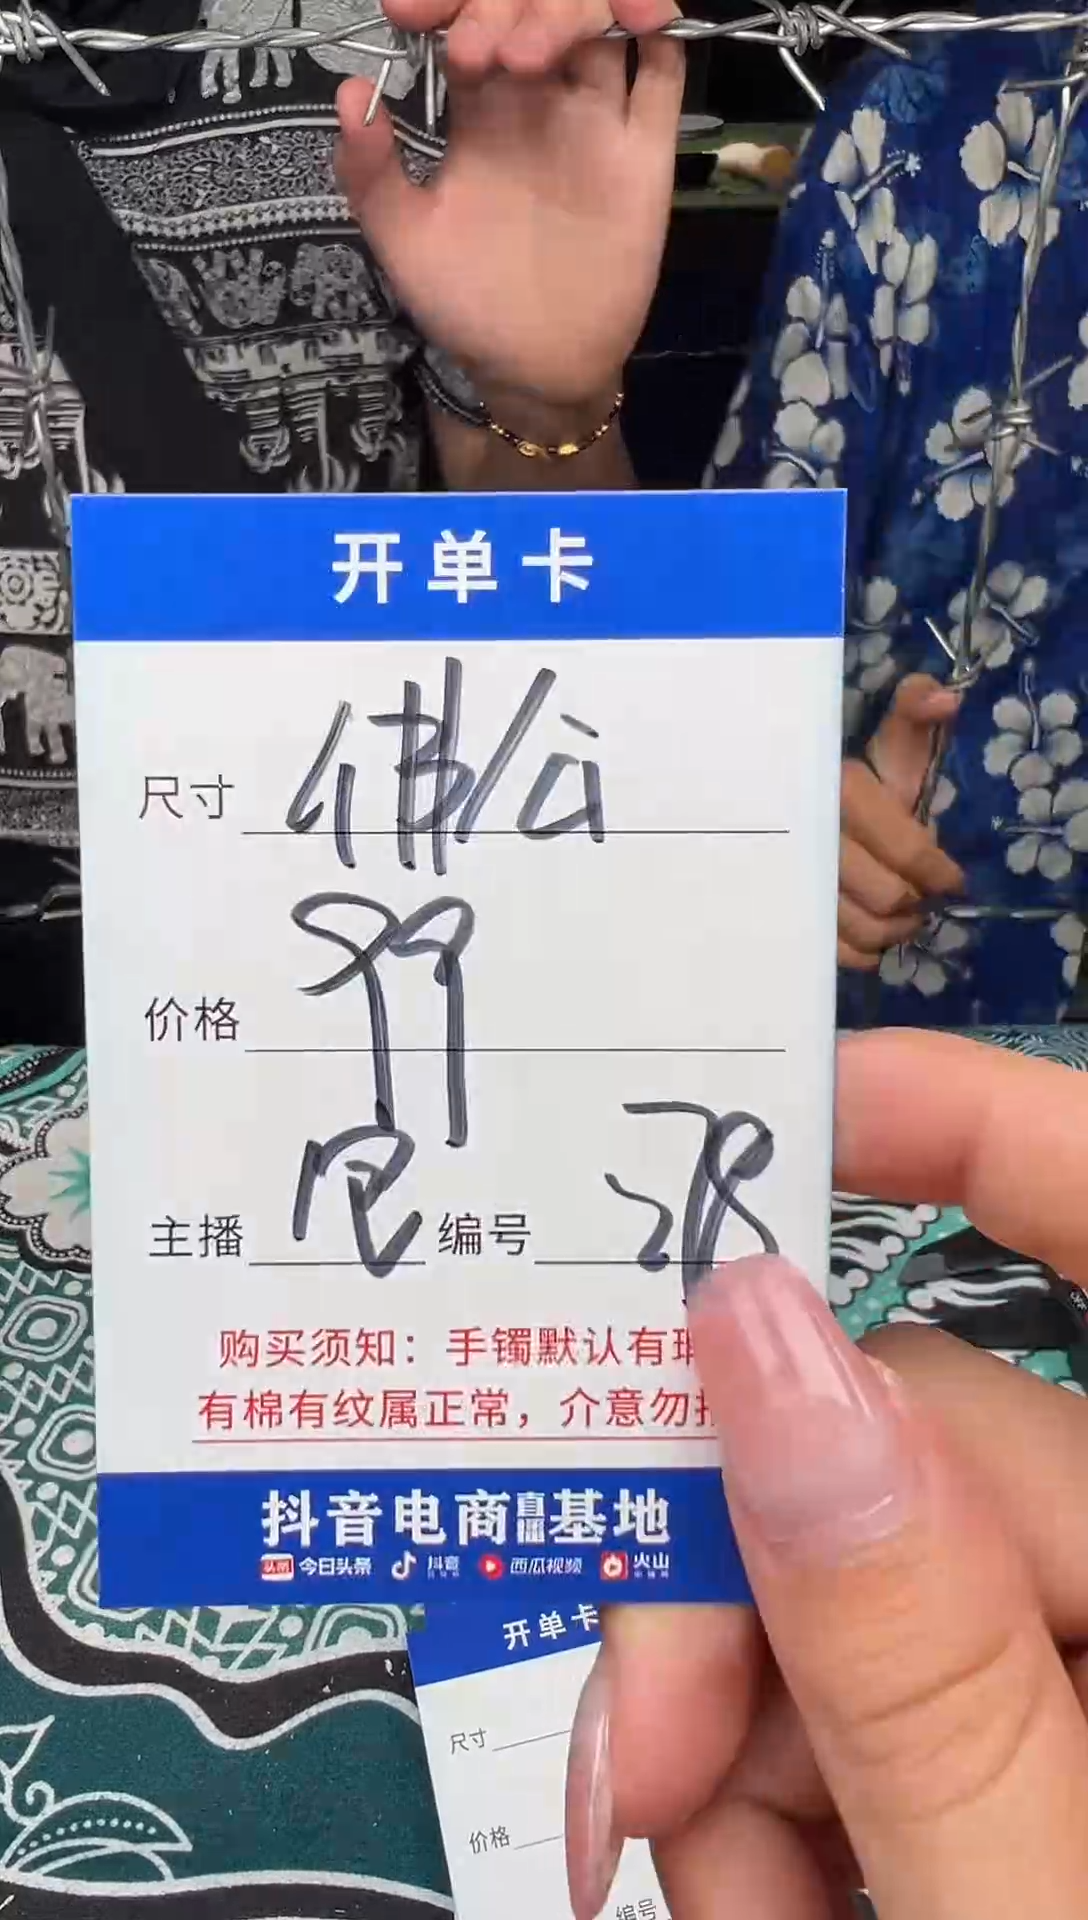 开单卡
尺寸 佛公
价格 99
主播 编号 278
购买须知：手镯默认有
有棉有纹属正常，介意勿
抖音电商直播基地
头条 今日头条 抖音 西瓜视频 火山
开单卡
尺寸
价格
编号